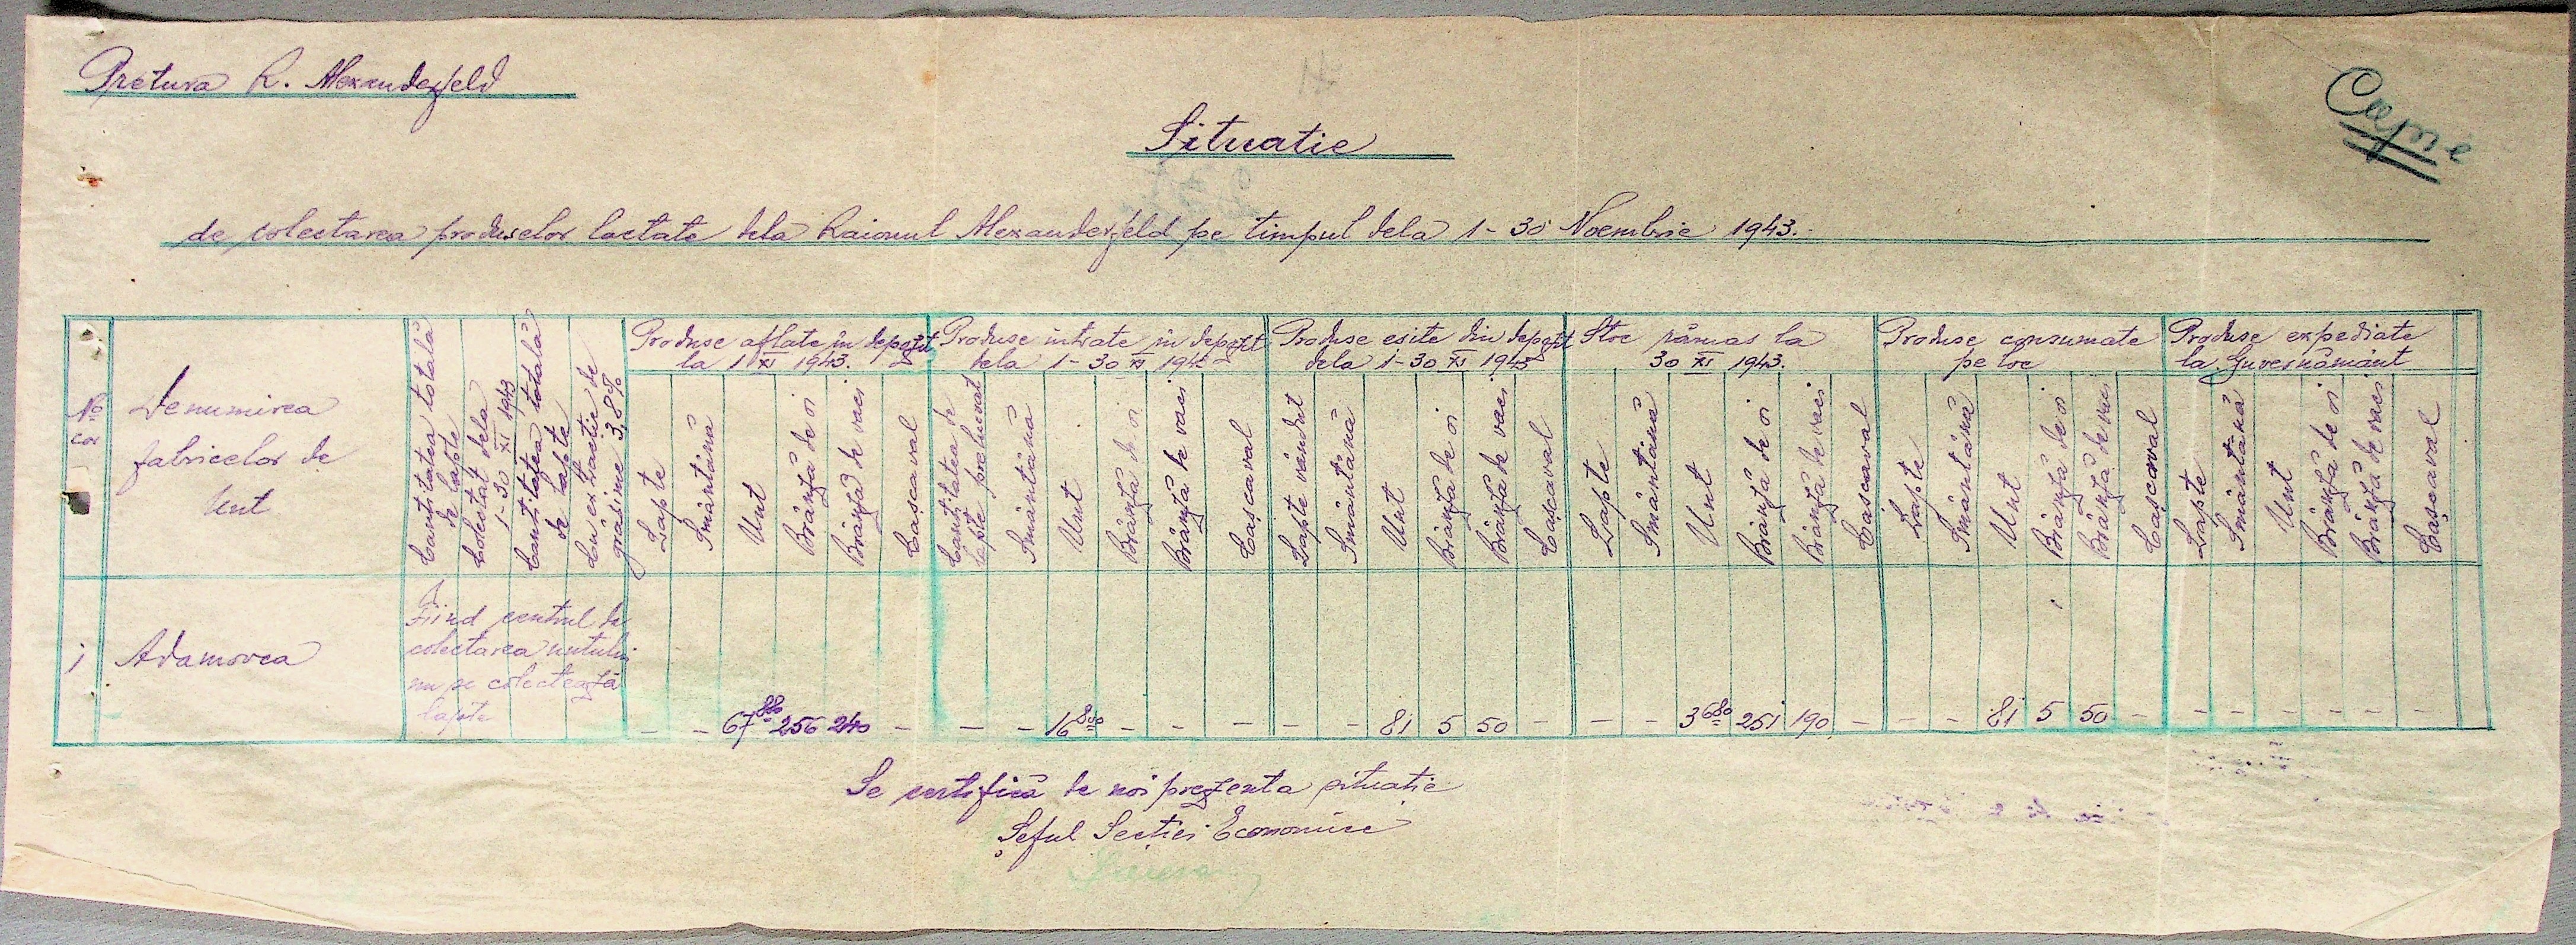 Pretura R. Alexanderfeld
Situatie
de colectarea produselor lactate dela Raionul Alexanderfeld pe timpul dela 1-30 Noembrie 1943.-
No
cor
Denumirea
fabricelor de
Unt
Cantitatea totală
de lapte
Colectat dela
1-30 XI 1943
Cantitatea totală
de lapte
Cu extractie de
grăsime 3,8%
Produse aflate în depozit
la 1 XI 1943.
Lapte
Smântână
Unt
Brânză de oi
Brânză de vaci
Cașcaval
Produse intrate în depozit
dela 1-30 XI 1943
Cantitatea de
lapte prelucrat
Smântână
Unt
Brânză de oi
Brânză de vaci
Cașcaval
Produse esite din depozit
dela 1-30 XI 1943
Lapte vândut
Smântână
Unt
Brânză de oi
Brânză de vaci
Cașcaval
Stoc rămas la
30 XI 1943.
Lapte
Smântână
Unt
Brânză de oi
Brânză de vaci
Cașcaval
Produse consumate
pe loc
Lapte
Smântână
Unt
Brânză de oi
Brânză de vaci
Cașcaval
Produse expediate
la Guvernământ
Lapte
Smântână
Unt
Brânză de oi
Brânză de vaci
Cașcaval
1 Adamovca
Fiind centrul de
colectarea untului
nu se colectează
lapte
- - 67 880 256 240 - - - 16 800 - - - - - 81 5 50 - - - 3 680 251 190 - - - 81 5 50 - - - - - - -
Se certifică de noi prezenta situație
Șeful Secției Economice